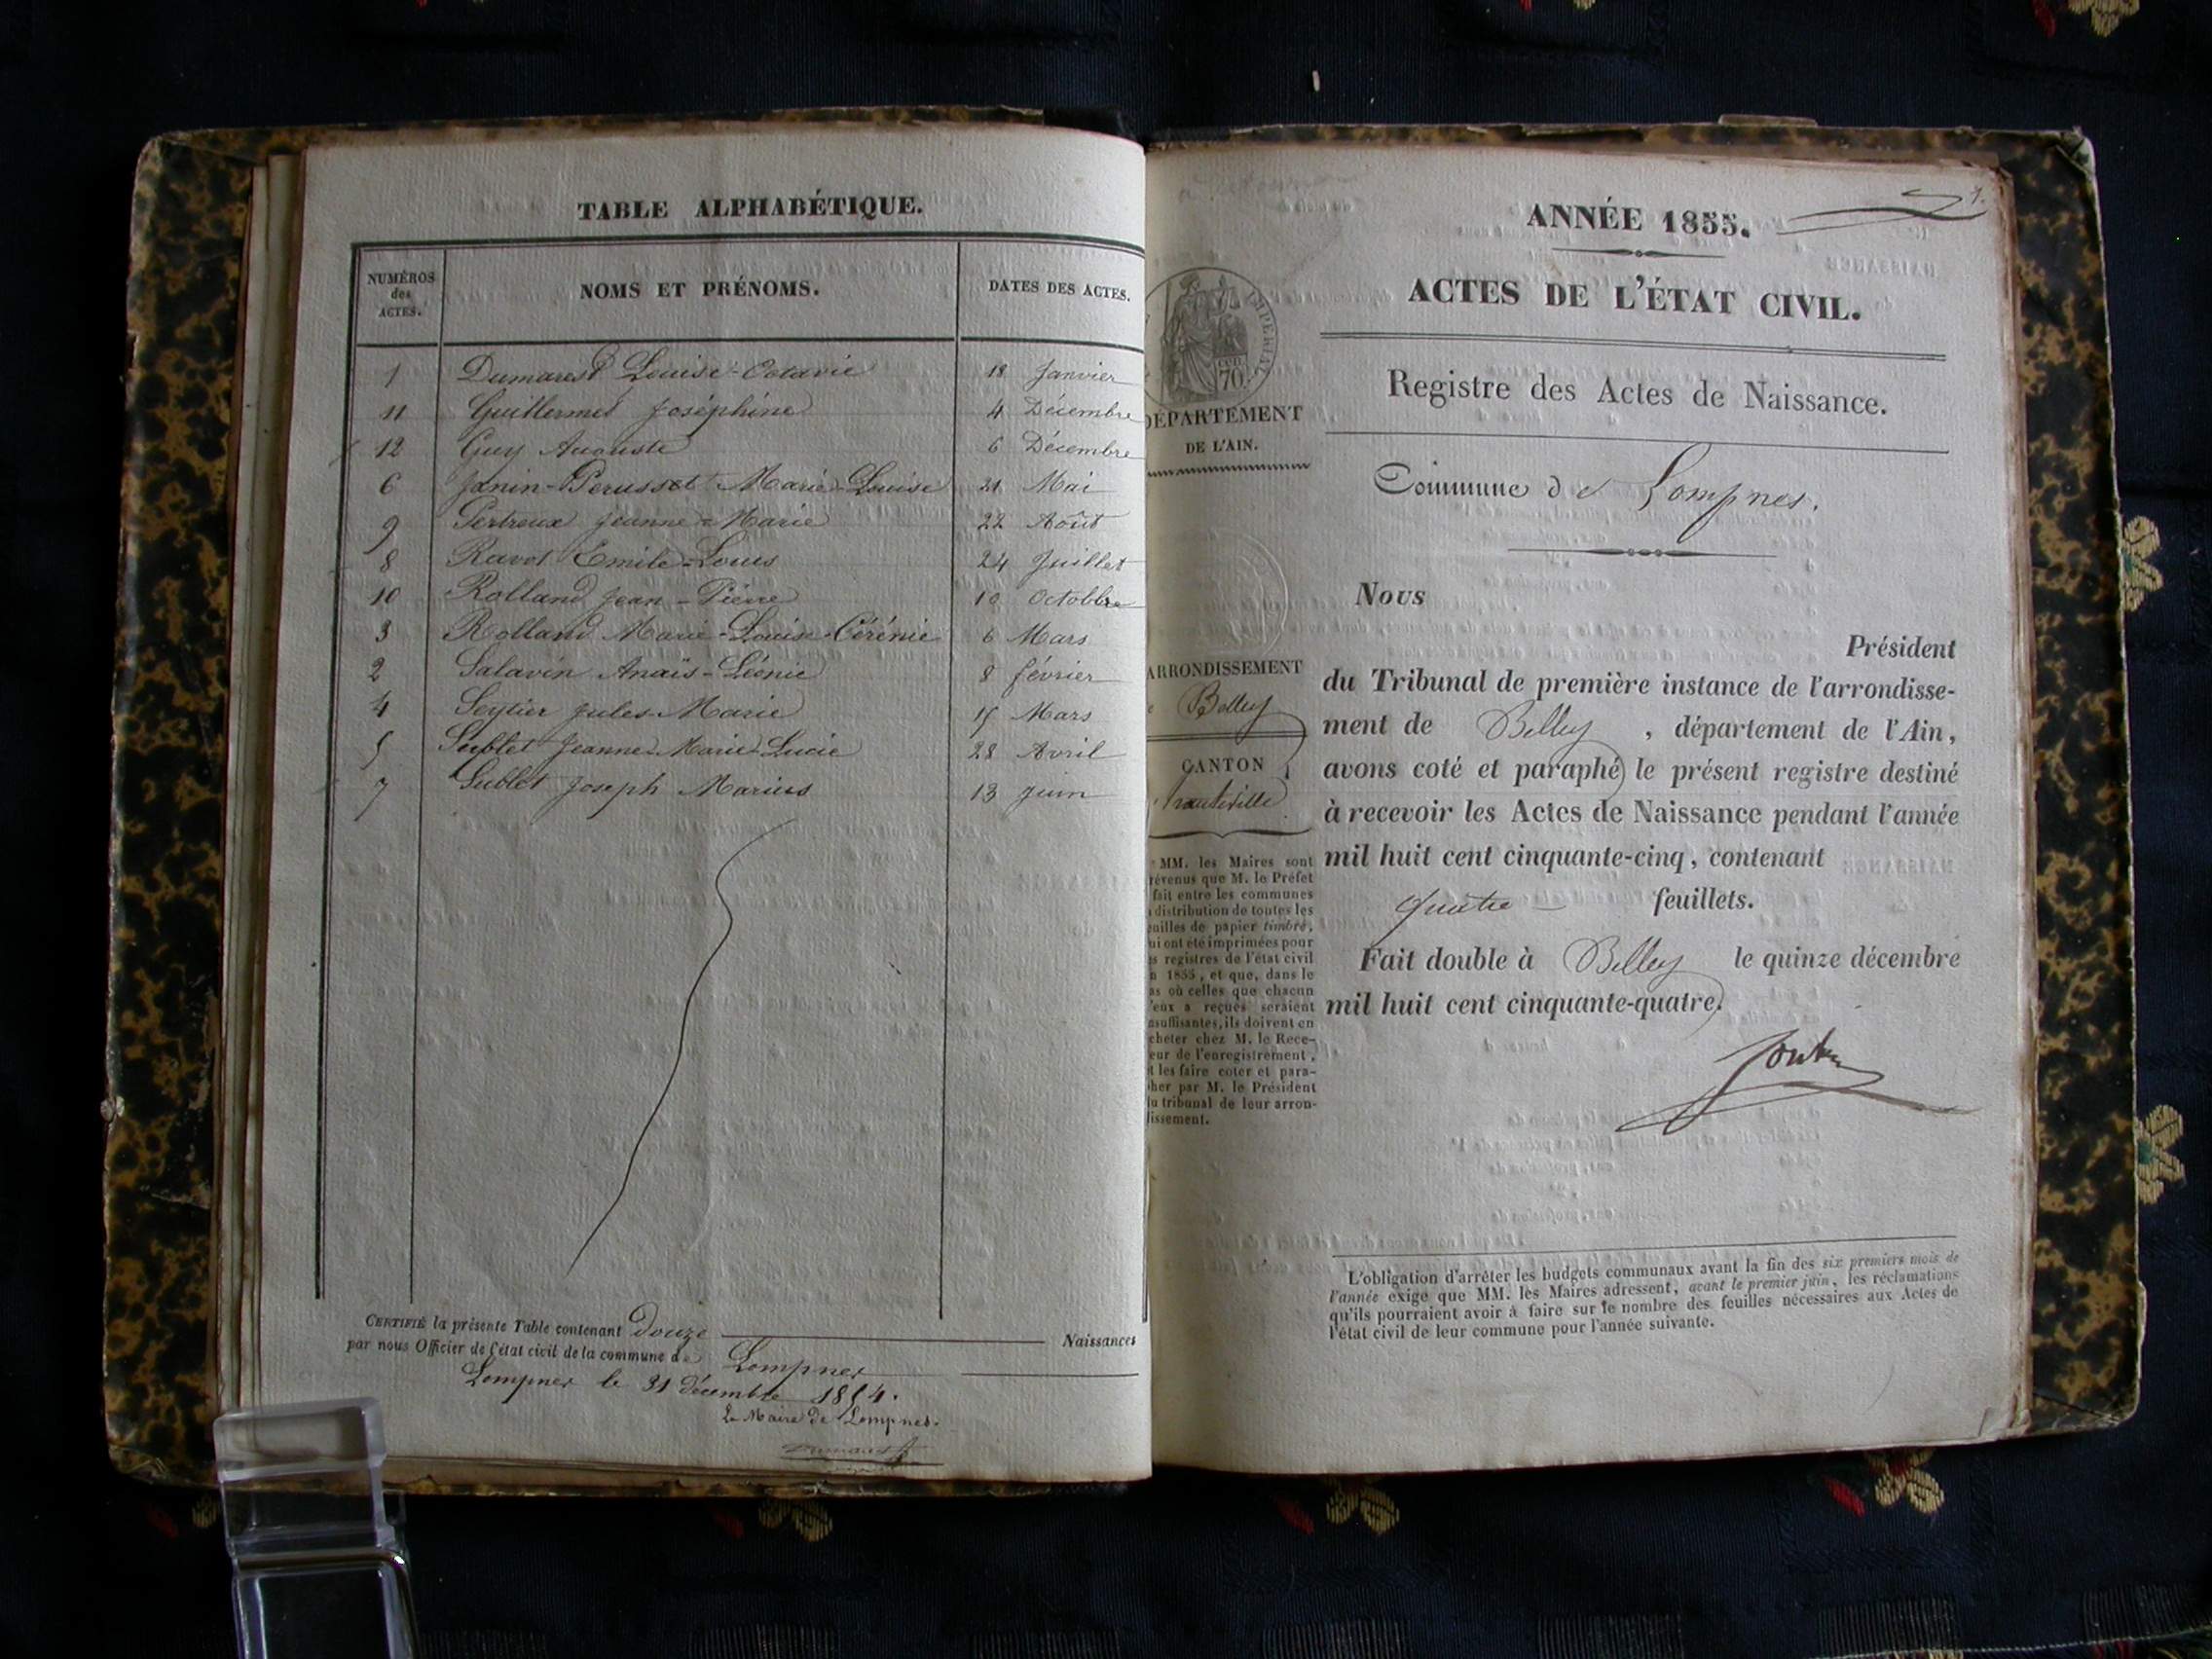 TABLE ALPHABÉTIQUE.
NUMÉROS
des
ACTES.
NOMS ET PRÉNOMS.
DATES DES ACTES.
1 Dumarest Louise-Octavie 18 Janvier
11 Guillermet Joséphine 4 Décembre
12 Guy Auguste 6 Décembre
6 Janin-Perusset Marie-Louise 21 Mai
9 Pertreux Jeanne-Marie 22 Août
8 Ravot Emile-Louis 24 Juillet
10 Rolland Jean-Pierre 10 Octobbre
3 Rolland Marie-Louise-Cérénie 6 Mars
2 Salavin Anaïs-Léonie 8 février
4 Seytier Jules-Marie 15 Mars
5 Sublet Jeanne-Marie-Lucie 28 Avril
7 Sublet Joseph Marius 13 Juin
CERTIFIÉ la présente Table contenant douze Naissances
par nous Officier de l'état civil de la commune de Lompnes
Lompnes le 31 décembre 1854.
Le Maire de Lompnes.
Dumarest
1.
ANNÉE 1855.
ACTES DE L'ÉTAT CIVIL.
Registre des Actes de Naissance.
Commune de Lompnes.
IMPÉRIAL
70
DÉPARTEMENT
DE L'AIN.
ARRONDISSEMENT
Belley
CANTON
hauteville
MM. les Maires sont
révenus que M. le Préfet
fait entre les communes
distribution de toutes les
euilles de papier timbré,
ui ont été imprimées pour
s registres de l'état civil
n 1855, et que, dans le
as où celles que chacun
'eux a reçues seraient
nsuffisantes, ils doivent en
cheter chez M. le Rece-
eur de l'enregistrement,
t les faire coter et para-
her par M. le Président
u tribunal de leur arron-
issement.
Nous
Président
du Tribunal de première instance de l'arrondisse-
ment de Belley, département de l'Ain,
avons coté et paraphé le présent registre destiné
à recevoir les Actes de Naissance pendant l'année
mil huit cent cinquante-cinq, contenant
quatre feuillets.
Fait double à Belley le quinze décembre
mil huit cent cinquante-quatre.
L'obligation d'arrêter les budgets communaux avant la fin des six premiers mois de
l'année exige que MM. les Maires adressent, avant le premier juin, les réclamations
qu'ils pourraient avoir à faire sur le nombre des feuilles nécessaires aux Actes de
l'état civil de leur commune pour l'année suivante.